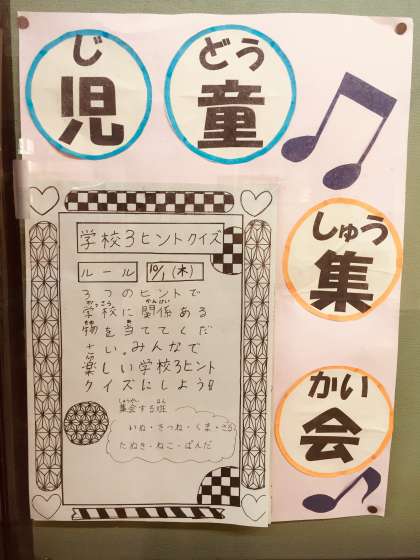 じ
児
どう
童
しゅう
集
かい
会
学校3ヒントクイズ
ルール 10/1(木)
3つのヒントで
がっこう かんけい
学校に関係ある
物を当ててくだ
さい。みんなで
楽しい学校3ヒント
クイズにしよう!!
しゅうかい はん
集会する班
いぬ・きつね・くま・さる
たぬき・ねこ・ぱんだ